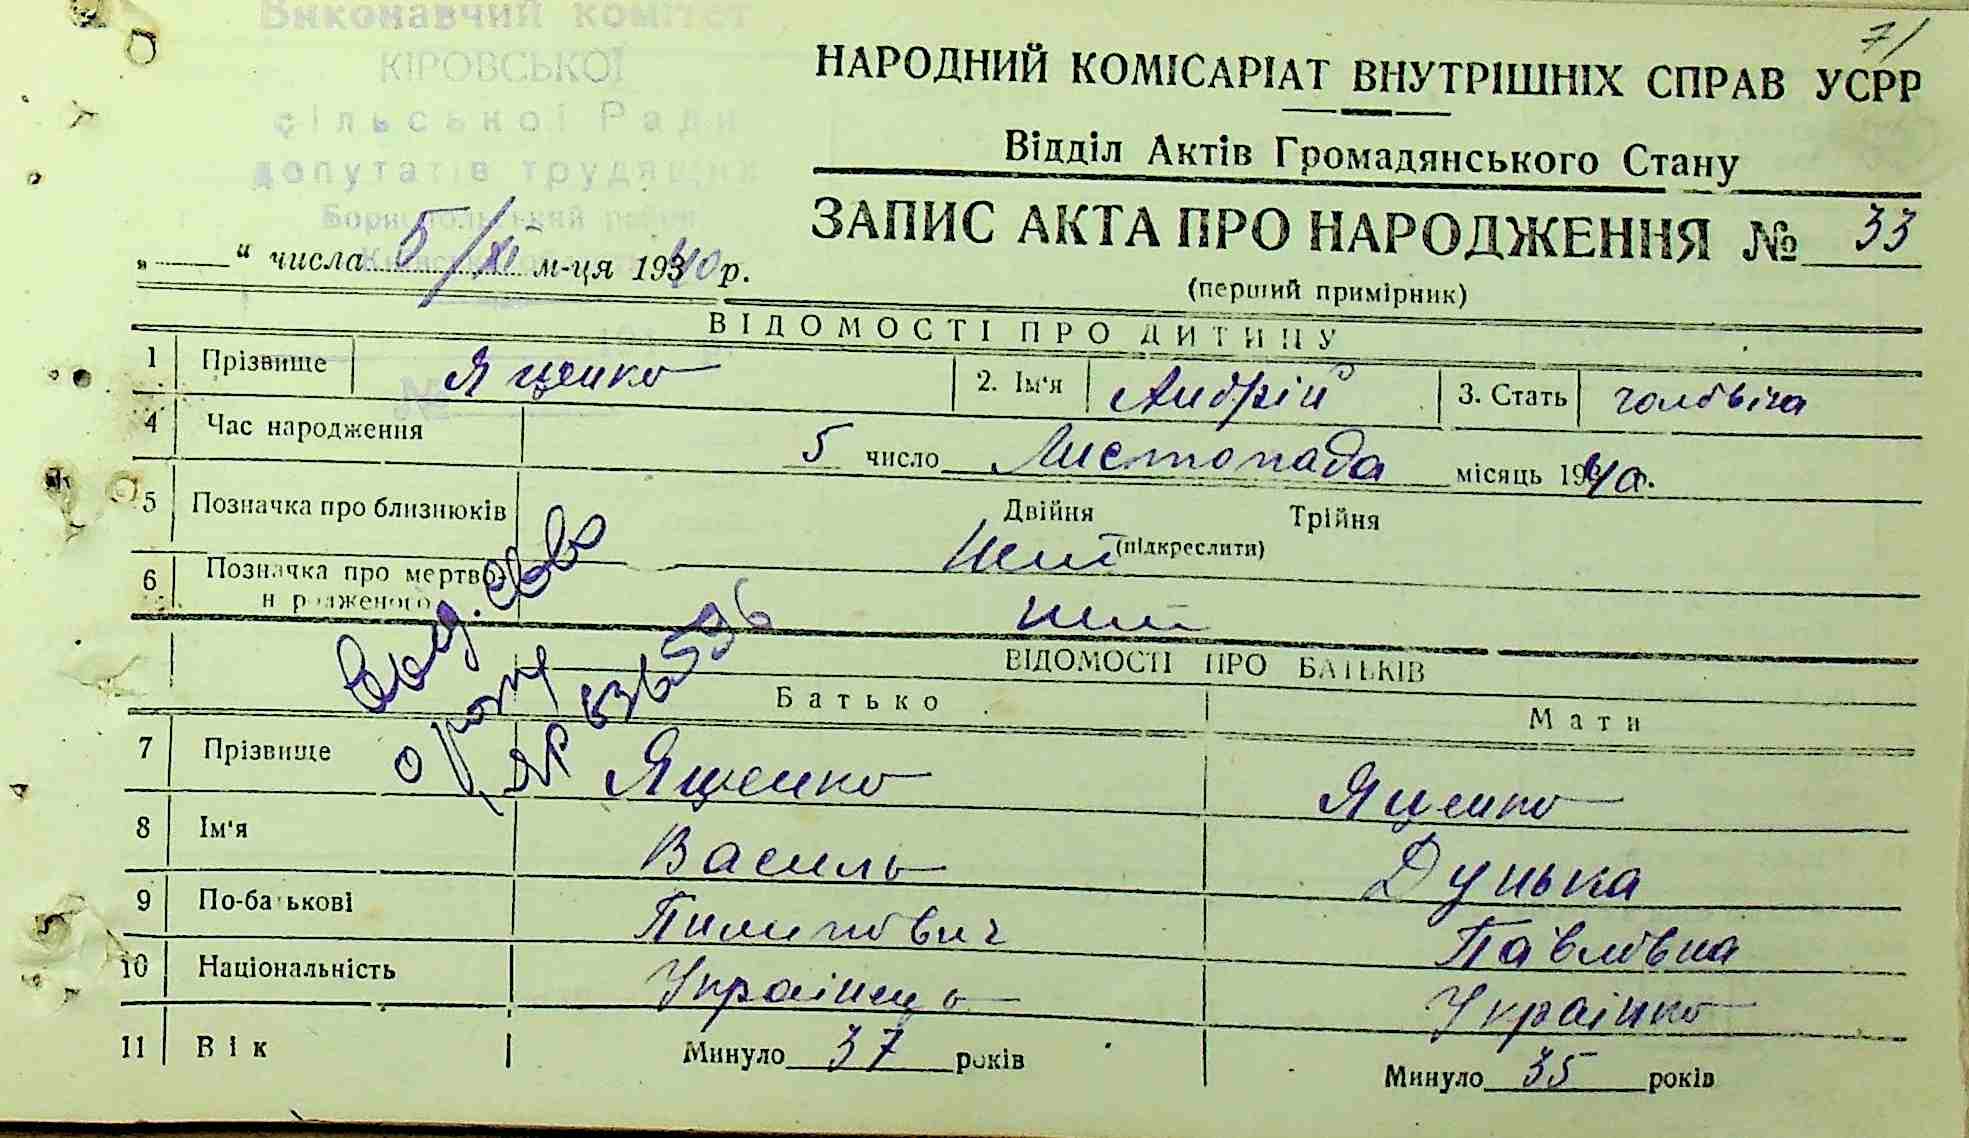 71
Виконавчий комітет
КІРОВСЬКОЇ
сільської Ради
депутатів трудящих
Бориспольський район
НАРОДНИЙ КОМІСАРІАТ ВНУТРІШНІХ СПРАВ УСРР
Відділ Актів Громадянського Стану
ЗАПИС АКТА ПРО НАРОДЖЕННЯ № 33
(перший примірник)
„ “ числа 5/XI м-ця 1940 р.
ВІДОМОСТІ ПРО ДИТИНУ
1 Прізвище Ященко 2. Ім'я Андрій 3. Стать чоловіча
4 Час народження 5 число Листопада місяць 1940.
5 Позначка про близнюків Двійня Трійня
(підкреслити)
6 Позначка про мертво-
народженого
ВІДОМОСТІ ПРО БАТЬКІВ
Батько Мати
7 Прізвище Ященко Ященко
8 Ім'я Василь Дунька
9 По-батькові Пилипович Павлівна
10 Національність Українець Українка
11 Вік Минуло 37 років Минуло 35 років
Выд. св-во
о рожд